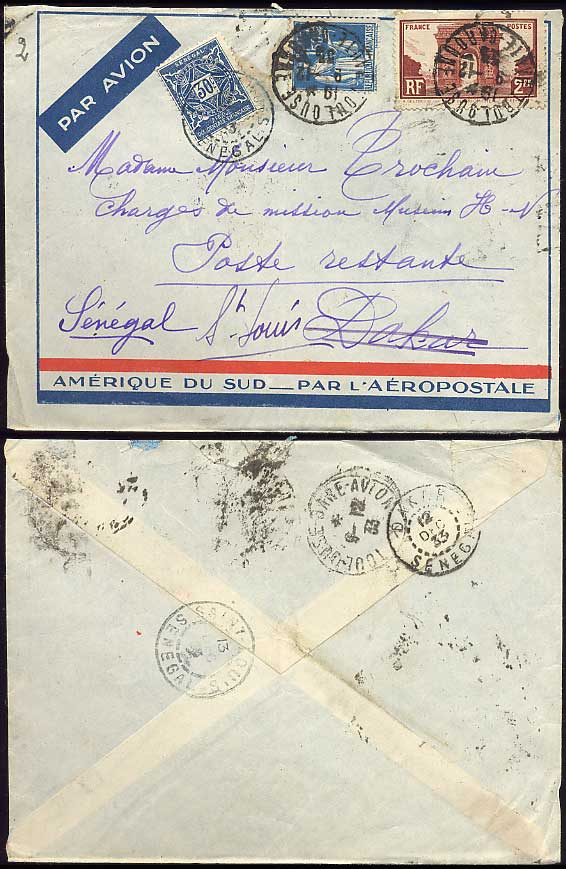 2
PAR AVION
SENEGAL
50
SENEGAL
FRANCE POSTES
RF 2F
Madame Monsieur Trochain
Chargés de mission Museum H-N.
Poste restante
Sénégal St Louis Dakar
AMÉRIQUE DU SUD _ PAR L'AÉROPOSTALE
TOULOUSE GARE-AVION
9-12
33
DAKAR
12
DEC
33
SENEGAL
SAINT LOUIS
13
SENEGAL